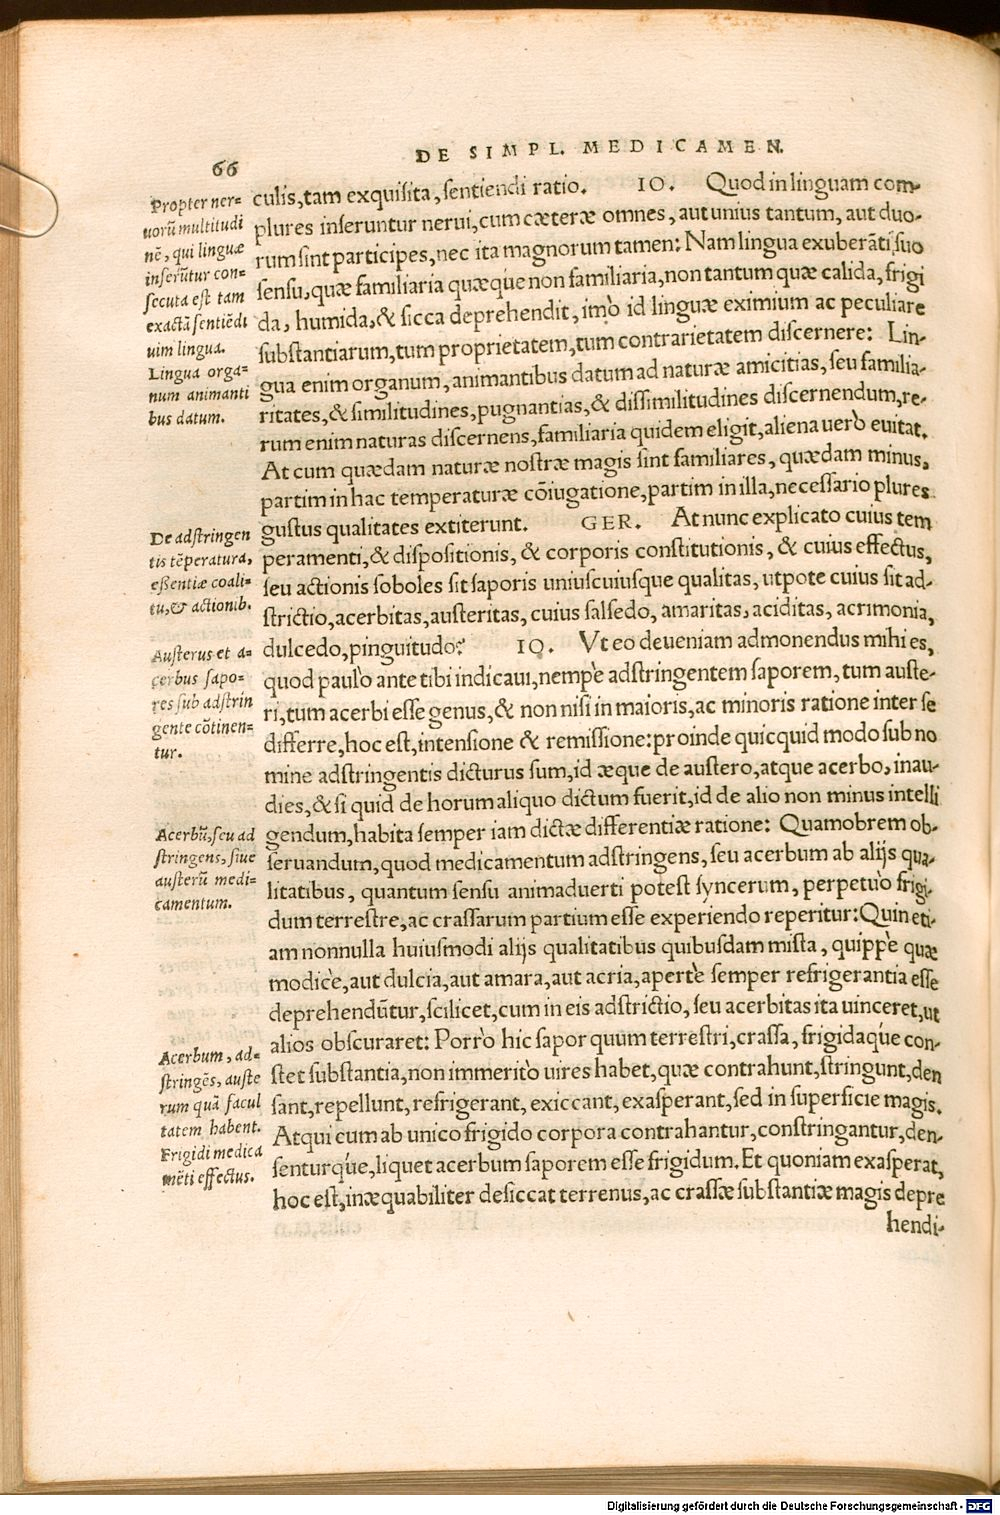 66
DE SIMPL. MEDICAMEN.
Propter ner=
uorũ multitudi
nẽ, qui linguæ
inserũtur con=
secuta est tam
exactã sentiẽdi
uim lingua.
Lingua orga=
num animanti
bus datum.
De adstringen
tis tẽperatura,
eßentiæ coali=
tu, & actionib.
Austerus et a=
cerbus sapo=
res sub adstrin
gente cõtinen=
tur.
Acerbũ, seu ad
stringens, siue
austerũ medi=
camentum.
Acerbum, ad=
stringẽs, auste
rum quã facul
tatem habent.
Frigidi medica
mẽti effectus.
culis, tam exquisita, sentiendi ratio. IO. Quod in linguam com-
plures inseruntur nerui, cum cæteræ omnes, aut unius tantum, aut duo-
rum sint participes, nec ita magnorum tamen: Nam lingua exuberãti suo
sensu, quæ familiaria quæq́ue non familiaria, non tantum quæ calida, frigi
da, humida, & sicca deprehendit, imò id linguæ eximium ac peculiare
substantiarum, tum proprietatem, tum contrarietatem discernere: Lin-
gua enim organum, animantibus datum ad naturæ amicitias, seu familia-
ritates, & similitudines, pugnantias, & dissimilitudines discernendum, re-
rum enim naturas discernens, familiaria quidem eligit, aliena uerò euitat.
At cum quædam naturæ nostræ magis sint familiares, quædam minus,
partim in hac temperaturæ cõiugatione, partim in illa, necessario plures
gustus qualitates extiterunt. GER. At nunc explicato cuius tem
peramenti, & dispositionis, & corporis constitutionis, & cuius effectus,
seu actionis soboles sit saporis uniuscuiusque qualitas, utpote cuius sit ad-
strictio, acerbitas, austeritas, cuius salsedo, amaritas, aciditas, acrimonia,
dulcedo, pinguitudo? IO. Vt eo deueniam admonendus mihi es,
quod paulò ante tibi indicaui, nempè adstringentem saporem, tum auste-
ri, tum acerbi esse genus, & non nisi in maioris, ac minoris ratione inter se
differre, hoc est, intensione & remissione: proinde quicquid modo sub no
mine adstringentis dicturus sum, id æque de austero, atque acerbo, inau-
dies, & si quid de horum aliquo dictum fuerit, id de alio non minus intelli
gendum, habita semper iam dictæ differentiæ ratione: Quamobrem ob-
seruandum, quod medicamentum adstringens, seu acerbum ab alijs qua-
litatibus, quantum sensu animaduerti potest syncerum, perpetuò frigi-
dum terrestre, ac crassarum partium esse experiendo reperitur: Quin eti-
am nonnulla huiusmodi alijs qualitatibus quibusdam mista, quippè quæ
modicè, aut dulcia, aut amara, aut acria, apertè semper refrigerantia esse
deprehendũtur, scilicet, cum in eis adstrictio, seu acerbitas ita uinceret, ut
alios obscuraret: Porrò hic sapor quum terrestri, crassa, frigidaq́ue con-
stet substantia, non immeritò uires habet, quæ contrahunt, stringunt, den
sant, repellunt, refrigerant, exiccant, exasperant, sed in superficie magis.
Atqui cum ab unico frigido corpora contrahantur, constringantur, den-
senturq́ue, liquet acerbum saporem esse frigidum. Et quoniam exasperat,
hoc est, inæquabiliter desiccat terrenus, ac crassæ substantiæ magis depre
hendi-
Digitalisierung gefördert durch die Deutsche Forschungsgemeinschaft - DFG